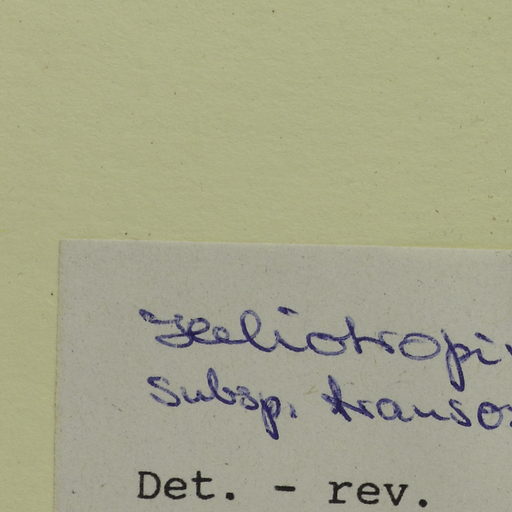 Heliotropi
subsp. transo
Det. - rev.